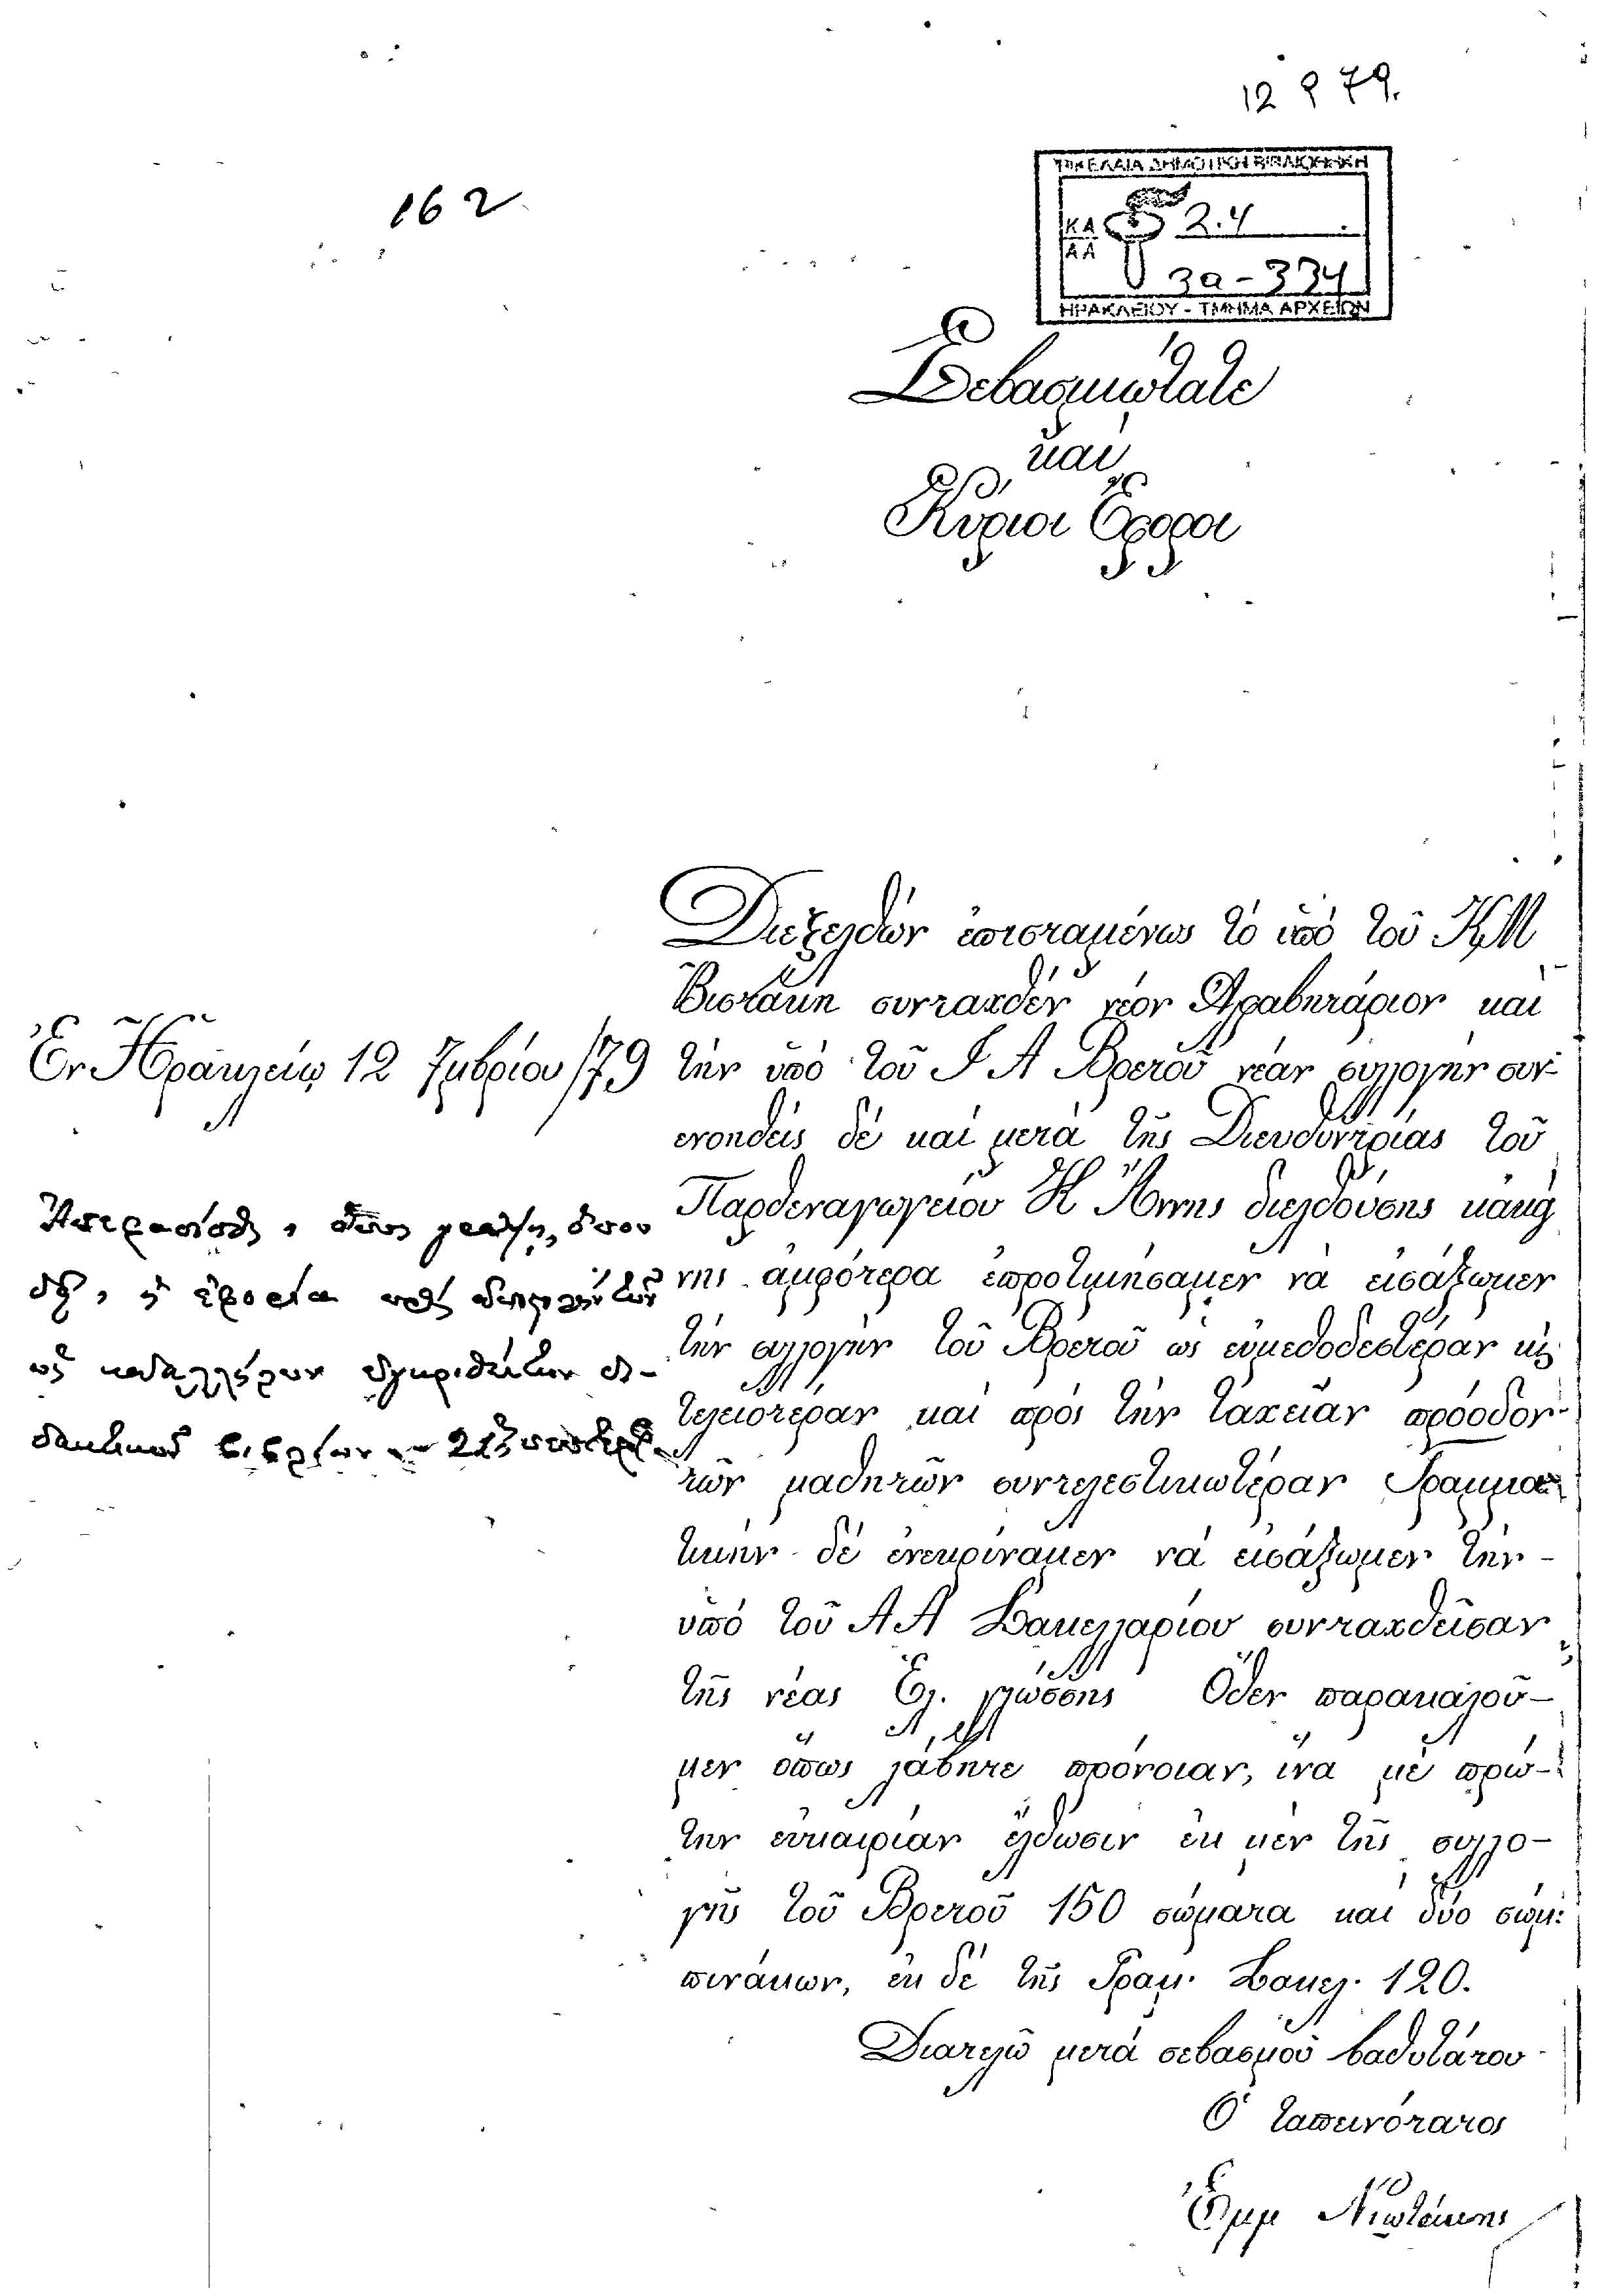 12 9 79.
162
ΒΙΚΕΛΑΙΑ ΔΗΜΟΤΙΚΗ ΒΙΒΛΙΟΘΗΚΗ
ΚΑ 2.4
ΑΑ 3α-334
ΗΡΑΚΛΕΙΟΥ - ΤΜΗΜΑ ΑΡΧΕΙΩΝ
Σεβασμιώτατε
καί
Κύριοι Ἔφοροι
Διεξελθών ἐπισταμένως τό ὑπό τοῦ Κ, Μ
Βιστάκη συνταχθέν νέον Ἀλφαβητάριον καί
Ἐν Ἡρακλείῳ 12 7μβρίου /79
τήν ὑπό τοῦ Γ Α Βρετοῦ νέαν συλλογήν συν-
ενοηθείς δέ καί μετά τῆς Διευθυντρίας τοῦ
Παρθεναγωγείου Κ Ἄννης διελθούσης κἀκεί
νης ἀμφότερα ἐπροτιμήσαμεν νά εἰσάξωμεν
τήν συλλογήν τοῦ Βρετοῦ ὡς εὐμεθοδεστέραν κ
τελειοτέραν καί πρός τήν ταχεῖαν πρόοδον
τῶν μαθητῶν συντελεστικωτέραν Γραμμα
τικήν δέ ἐνεκρίναμεν νά εἰσάξωμεν τήν -
ὑπό τοῦ Α Α Σακελλαρίου συνταχθεῖσαν
τῆς νέας Ἑλ. γλώσσης Ὅθεν παρακαλοῦ-
μεν ὅπως λάβητε πρόνοιαν, ἵνα μέ πρώ-
την εὐκαιρίαν ἔλθωσιν ἐκ μέν τῆς συλλο-
γῆς τοῦ Βρετοῦ 150 σώματα καί δύο σώμ:
πινάκων, ἐκ δέ τῆς Γραμ. Σακελ. 120.
Διατελῶ μετά σεβασμοῦ βαθυτάτου
Ὁ ταπεινότατος
Ἐμμ